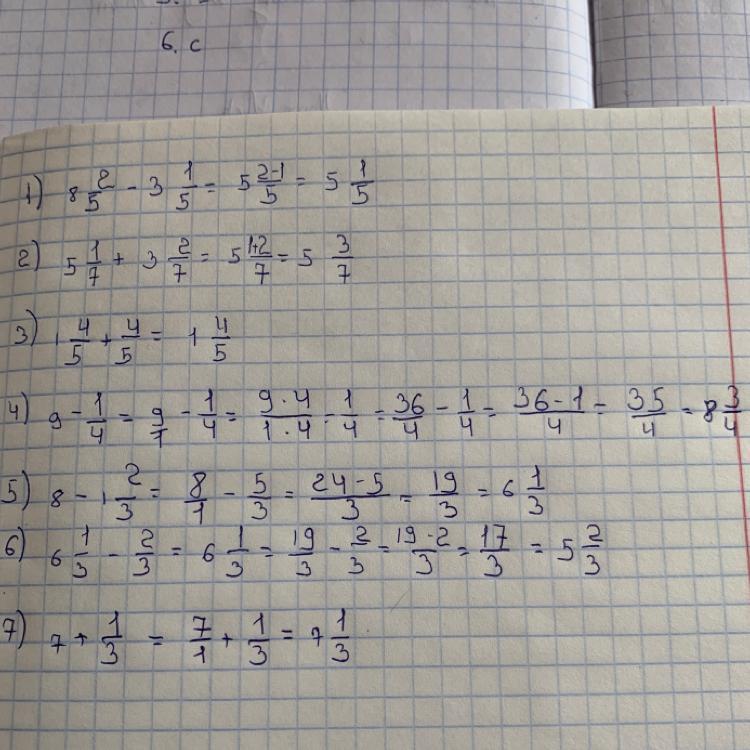 6. c
1) 8 2/5 - 3 1/5 = 5 2-1/5 = 5 1/5
2) 5 1/7 + 3 2/7 = 5 1+2/7 = 5 3/7
3) 1 4/5 + 4/5 = 1 4/5
4) 9 - 1/4 = 9/1 - 1/4 = 9·4/1·4 - 1/4 = 36/4 - 1/4 = 36-1/4 = 35/4 = 8 3/4
5) 8 - 1 2/3 = 8/1 - 5/3 = 24-5/3 = 19/3 = 6 1/3
6) 6 1/3 - 2/3 = 6 1/3 = 19/3 - 2/3 = 19-2/3 = 17/3 = 5 2/3
7) 7 + 1/3 = 7/1 + 1/3 = 7 1/3